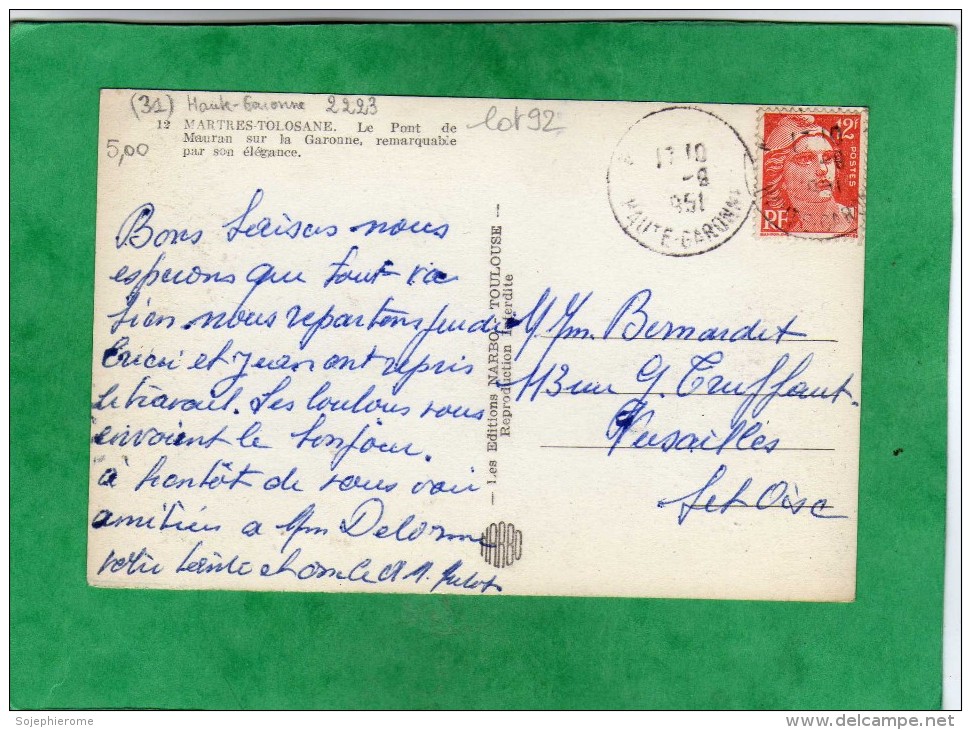 (31) Haute-Garonne 2223
lot 92
5,00
12 MARTRES-TOLOSANE. Le Pont de
Mauran sur la Garonne, remarquable
par son élégance.
17 10
-8
951
HAUTE-GARONNE
12F
POSTES
RF
Bons baisers nous
esperons que tout va
bien. nous repartons jeudi
et Jean ont repris
le travail. Les loulous vous
envoient le bonjour.
a bientôt de vous voir
amitiés a Mm Delorme
votre tante et oncle
— Les Editions NARBO - TOULOUSE —
Reproduction Interdite
NARBO
M. Mm. Bernardet
113 rue G. Truffaut.
Versailles
S et Oise
Sojephierome
www.delcampe.net